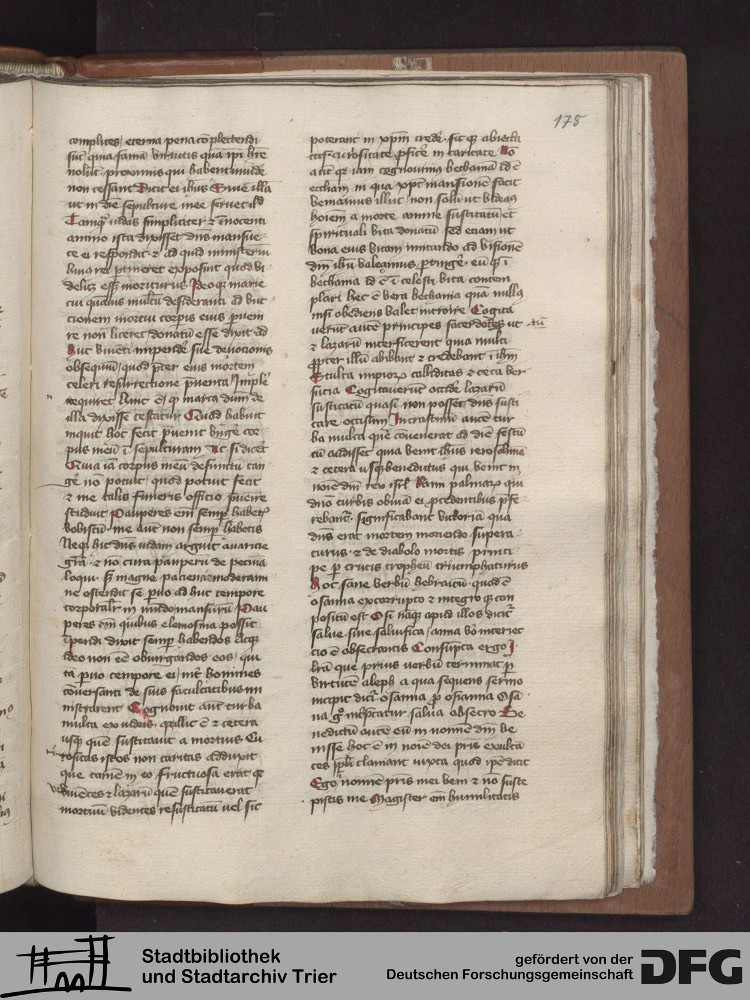 175
complices eterna pena complectendi
sunt quia famam virtutis qua ipi
nolunt proximis qui habent invide
non cessant Dixit ei ihus Sine illa
ut in die sepulture mee servet illud
Tamquam iudas simpliciter et innocenti
animo ista dixisset dns mansue
te ei respondit et ad quid ministerium
exposuit quod vi
moriturus Ideoque marie
cui quamvis multum desideranti ad unc
tionem mortui corpus eius perveni
re non liceret donatum esse dixit ad
huc viventi impendere sue devotionis
obsequium quod post eius mortem
celeri resurrectione preventa
nequiret hinc est quod marcus dum de
illa dixisse testatur Quod habuit
inquit hoc fecit prevenit ungere cor
pus meum in sepulturam ac si diceret
Quia iam corpus meum defunctum tan
gere non potuit quod potuit fecit
et me talis funeris officio prevenire
studuit Pauperes enim semper habetis
vobiscum me aut non semper habetis
Neque hic dns iudam arguit avaricie
et non cura pauperum de pecunia
loqui magne paciencie moderami
ne ostendit se parvo adhuc tempore
corporaliter in mundo mansurum Pau
peres enim quibus elemosina possit
impendi dixit semper habendos eosque
ideo non esse obiurgandos eos qui
ipso tempore ei inter homines
conversanti de suis facultatibus mi
nistrarent Cognovit aut turba
multa ex iudeis quia illic est et cetera
usque quem suscitavit a mortuis Cu
riositas istos non caritas adduxit
que tamen in eo fructuosa erat quod
viventes et lazarum quem suscitaverat
mortuum videntes resuscitatum vel sic
poterant in xpm credere sicque abiecta
curiositate proficere in caritate No
aut quia iam cognovimus bethaniam id est
ecclesiam in qua xps mansionem facit
veniamus illuc non solum ut videam
hominem a morte anime suscitatum et
spirituali vita donatum sed etiam ut
bona eius vitam imitando ad visionem
dni ihu valeamus pertingere
bethania id est celesti vita contem
plari hec est vera bethania qua nullus
nisi obediens valet introire Cogita
verunt autem principes sacerdotes ut
et lazarum interficerent quia multi
propter illum abibant et credebant in ihm
Stulta impiorum calliditas et ceca ver
sucia Cogitaverunt occidere lazarum
suscitatum quasi non posset dns susci
tare occisum In crastinum autem tur
ba multa que convenerat ad diem festum
cum audisset quia venit ihus ierosolima
et cetera usque benedictus qui venit in
noie dni rex isrl Rami palmarum qui
dno turbis obviam ei procedentibus prefe
rebantur significabant victoriam qua
dns erat mortem moriendo supera
turus et de diabolo mortis princi
pe per crucis tropheum triumphaturus
Hoc sane verbum hebraicum quod est
osanna ex corrupto et integro est con
positum est Osi namque apud illos dicitur
salve sive salvifica anna vero interiec
tio est obsecrantis Consumpta ergo I
littera que prius verbum terminat per
virtutem aleph a qua sequens sermo
incipit dicitur osanna pro osianna Osa
na ergo interpretatur salva obsecro Be
nedictum autem eum in nomine dni ve
nisse hoc est in noie dei pris exulta
tes ipsi clamant iuxta quod ipse dicit
Ego in nomine pris mei veni et non susce
pistis me Magister enim humilitatis
Stadtbibliothek
und Stadtarchiv Trier
gefördert von der
Deutschen Forschungsgemeinschaft
DFG